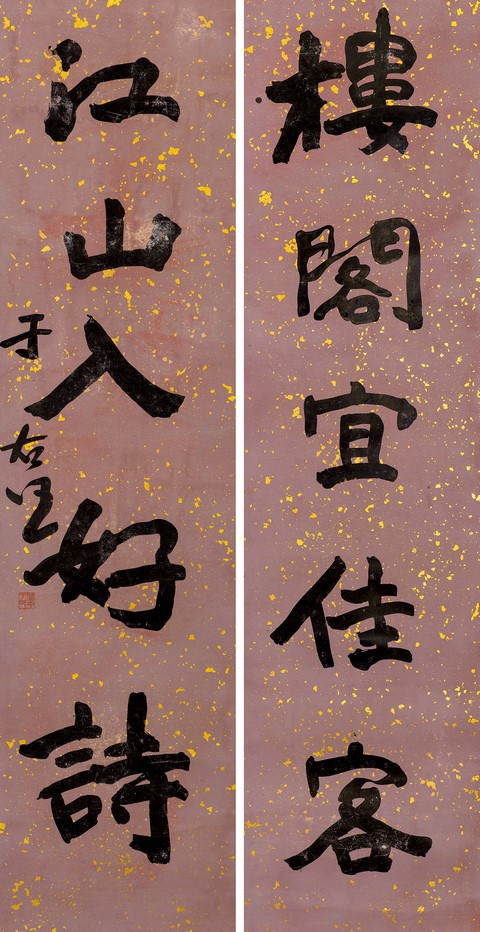 樓閣宜佳客
江山入好詩
于右任